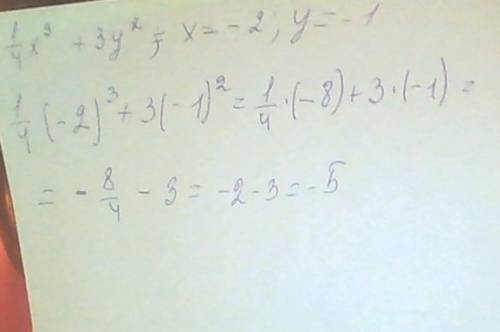 1/4 x³ + 3y²; x = -2; y = -1
1/4 (-2)³ + 3(-1)² = 1/4 · (-8) + 3 · (-1) =
= - 8/4 - 3 = -2 - 3 = -5